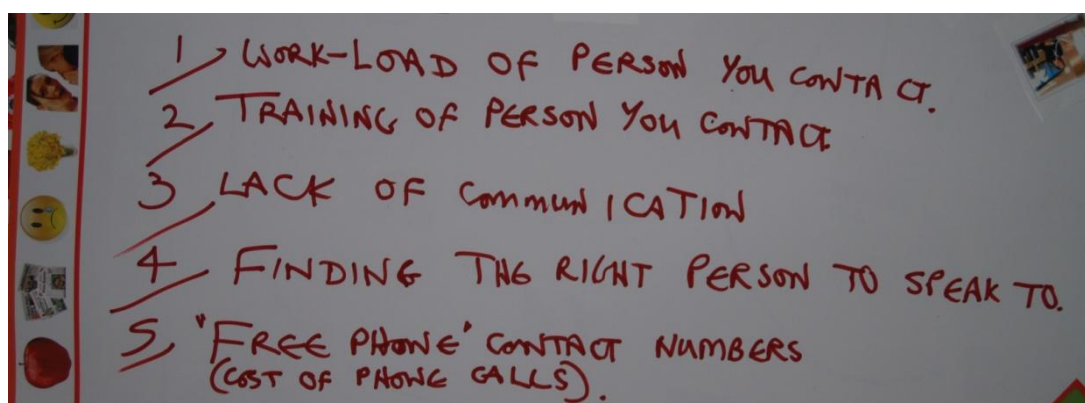 1, WORK-LOAD OF PERSON YOU CONTACT.
2, TRAINING OF PERSON YOU CONTACT
3, LACK OF COMMUNICATION
4, FINDING THE RIGHT PERSON TO SPEAK TO.
5, "FREE PHONE" CONTACT NUMBERS
(COST OF PHONE CALLS).